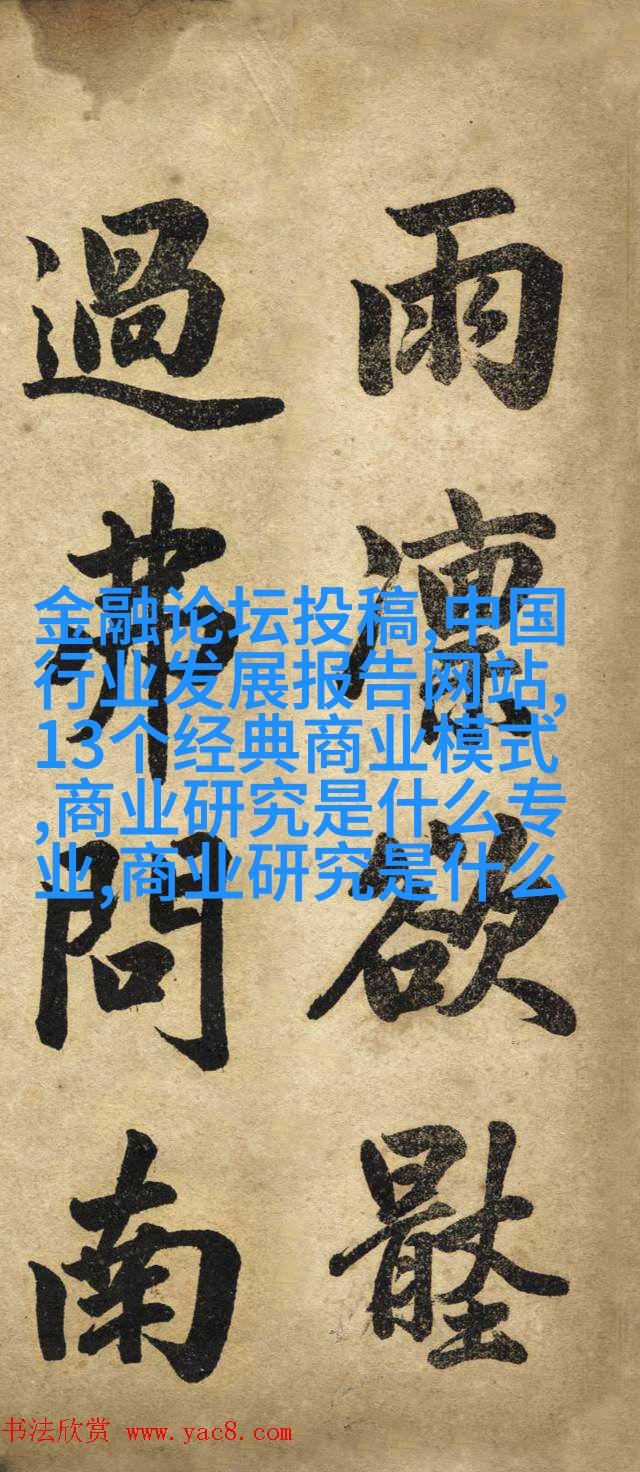 雨欲
過問南
金融论坛投稿,中国
行业发展报告网站,
13个经典商业模式
,商业研究是什么专
业,商业研究是什么
书法欣赏 www.yac8.com